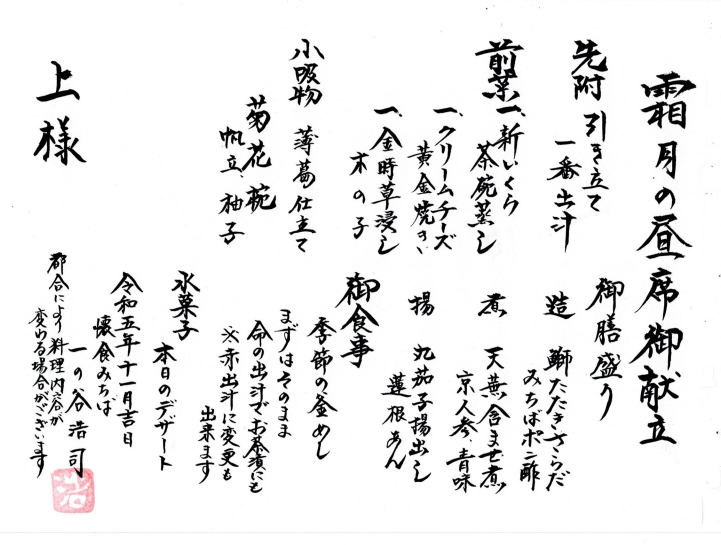 霜月の昼席御献立
先附 引き立て
一番出汁
前菜 一、新いくら
茶碗蒸し
一、クリームチーズ
黄金焼き
一、金時草浸し
木の子
小吸物 薄葛仕立て
菊花椀
帆立、柚子
御膳盛り
造 鰤たたきさらだ
みちばポン酢
煮 天蕪含ませ煮
京人参、青味
揚 丸茄子揚出し
蓮根あん
御食事
季節の釜めし
まずはそのまま
命の出汁でお茶漬にも
※赤出汁に変更も
出来ます
水菓子
本日のデザート
令和五年十一月吉日
懐食みちば
一の谷浩司
浩
都合により料理内容が
変わる場合がございます
上様